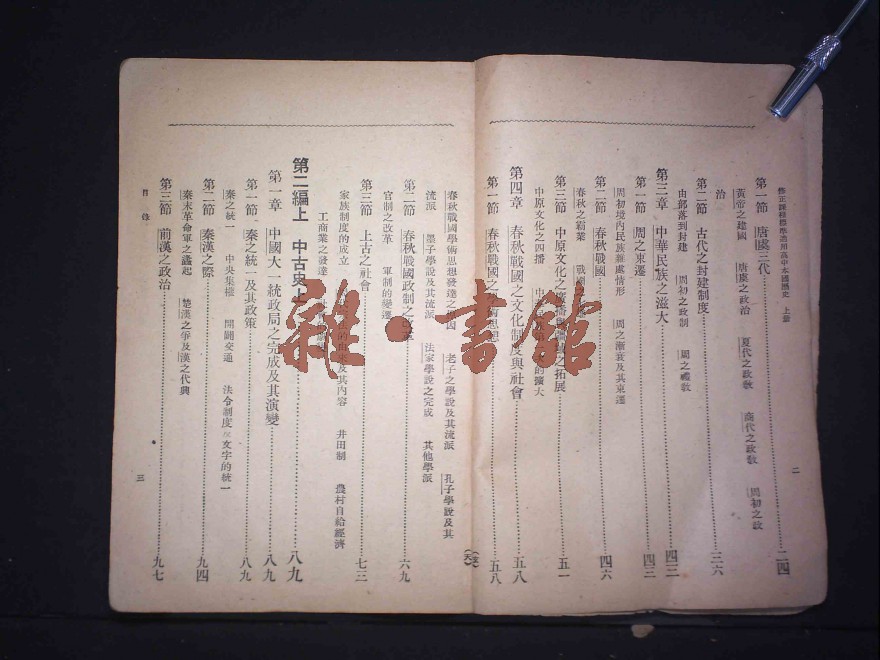 修正課程標準適用高中本國歷史 上冊
二
第一節 唐虞三代……二四
黃帝之建國 唐虞之政治 夏代之政敎 商代之政敎 周初之政
治
第二節 古代之封建制度……三六
由部落到封建 周初之政制 周之禮敎
第三章 中華民族之滋大……四三
第一節 周之東遷……四三
周初境內民族雜處情形 周之漸衰及其東遷
第二節 春秋戰國……四六
春秋之霸業
第三節 中原文化之 之拓展……五一
中原文化之四播 的擴大
第四章 春秋戰國之文化制度與社會……五八
第一節 春秋戰國之 術思想……五八
春秋戰國學術思想發達之 因 老子之學說及其流派 孔子學說及其
流派 墨子學說及其流派 法家學說之完成 其他學派
第二節 春秋戰國政制之改革……六九
官制之改革 軍制的變遷
第三節 上古之社會……七三
家族制度的成立 由來及其內容 井田制 農村自給經濟
工商業之發達
第二編上 中古史上……八九
第一章 中國大一統政局之完成及其演變……八九
第一節 秦之統一及其政策……八九
秦之統一 中央集權 開闢交通 法令制度及文字的統一
第二節 秦漢之際……九四
秦末革命軍之蠭起 楚漢之爭及漢之代興
第三節 前漢之政治……九七
目錄
三
雜·書館